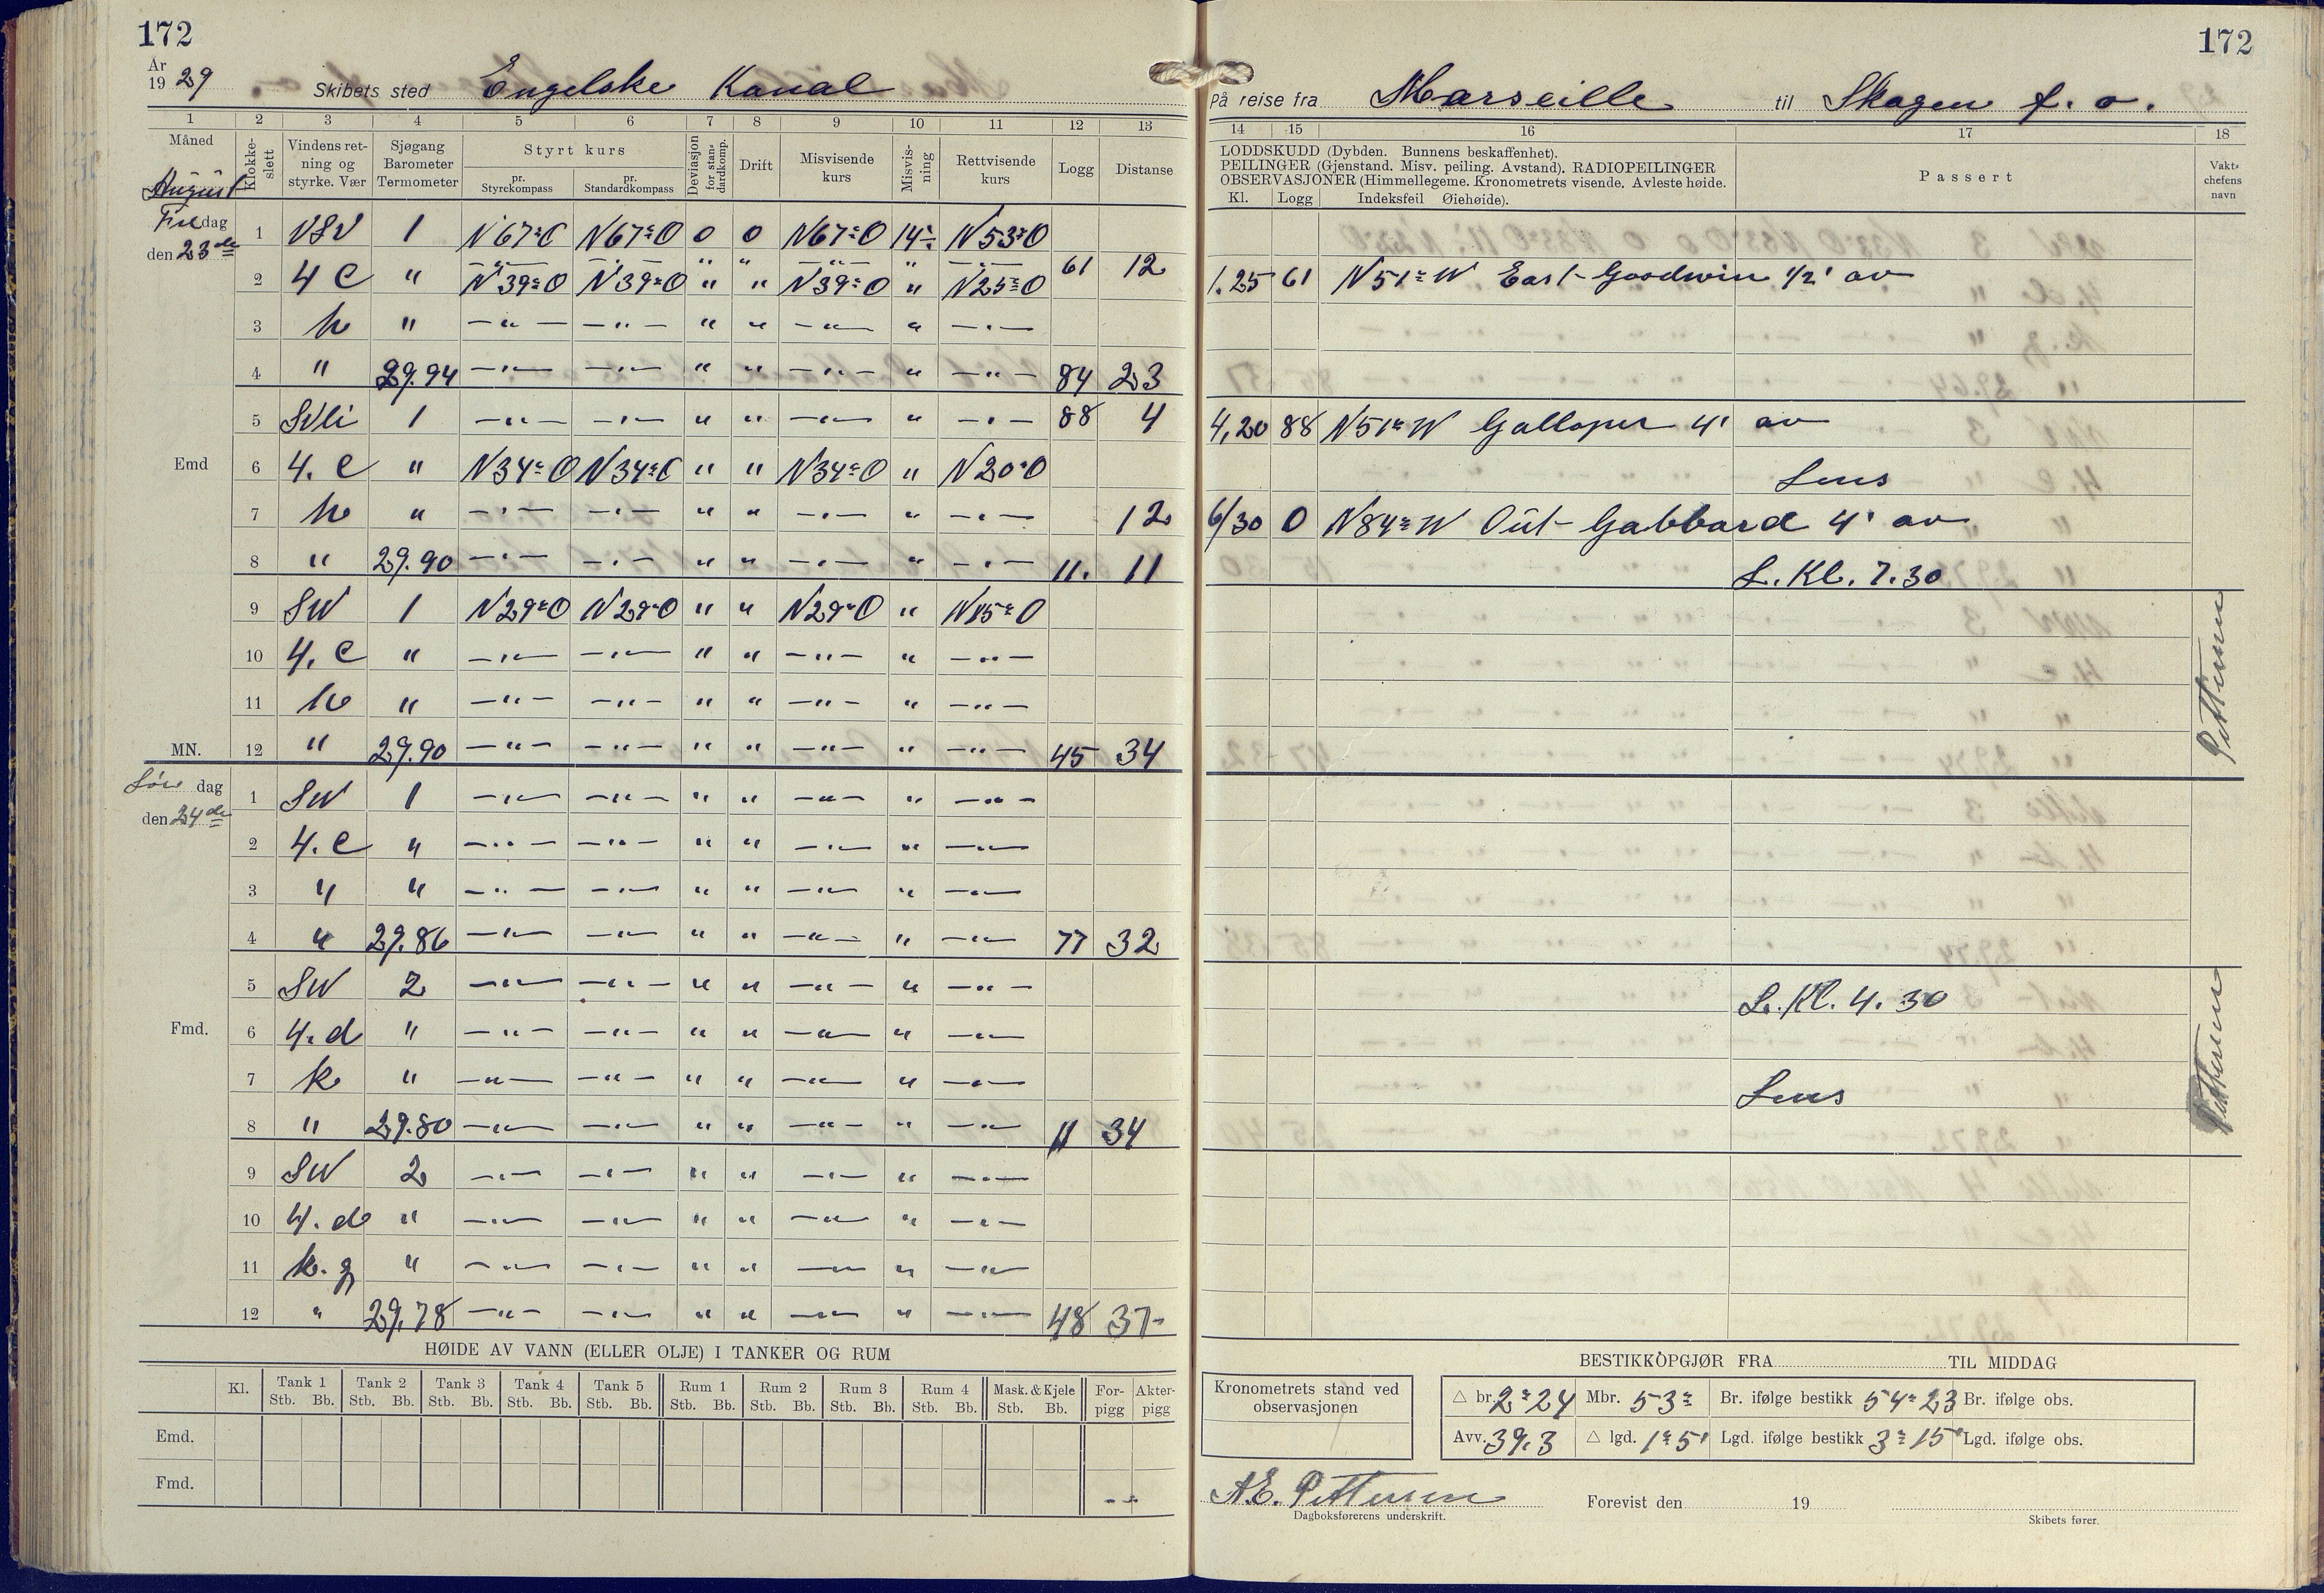 172
172
År
1929 Skibets sted Engelske Kanal
På reise fra Marseille til Skagen f. o.
1 2 3 4 5 6 7 8 9 10 11 12 13
14 15 16 17 18
Måned August
Klokkeslett
Vindens retning og styrke. Vær
Sjøgang Barometer Termometer
Styrt kurs
pr. Styrekompass
pr. Standardkompass
Deviasjon for standardkomp.
Drift
Misvisende kurs
Misvisning
Rettvisende kurs
Logg
Distanse
LODDSKUDD (Dybden. Bunnens beskaffenhet).
PEILINGER (Gjenstand. Misv. peiling. Avstand). RADIOPEILINGER
OBSERVASJONER (Himmellegeme. Kronometrets visende. Avleste høide.
Kl. Logg Indeksfeil Øiehøide).
Passert
Vaktchefens navn
Fredag
den 23de
1 VSV 1 N67°O N67°O 0 0 N67°O 14° N53°O
—"— —"— " " —"— " —"— 61 12
2 4 C " N39°O N39°O " " N39°O " N25°O
3 h " —"— —"— " " —"— " —"—
4 " 29.94 —"— —"— " " —"— " —"— 84 23
5 SVli 1 —"— —"— " " —"— " —"— 88 4
Emd 6 4. C " N34°O N34°O " " N34°O " N20°O
7 h " —"— —"— " " —"— " —"— 12
8 " 29.90 —"— —"— " " —"— " —"— 11. 11
9 SW 1 N29°O N29°O " " N29°O " N15°O
10 4. C " —"— —"— " " —"— " —"—
11 h " —"— —"— " " —"— " —"—
MN. 12 " 29.90 —"— —"— " " —"— " —"— 45 34
Lördag
den 24de
1 SW 1 —"— —"— " " —"— " —"—
2 4. C " —"— —"— " " —"— " —"—
3 " " —"— —"— " " —"— " —"—
4 " 29.86 —"— —"— " " —"— " —"— 77 32
5 SW 2 —"— —"— " " —"— " —"—
Fmd. 6 4. d " —"— —"— " " —"— " —"—
7 k " —"— —"— " " —"— " —"—
8 " 29.80 —"— —"— " " —"— " —"— 11 34
9 SW 2 —"— —"— " " —"— " —"—
10 4. d " —"— —"— " " —"— " —"—
11 k. g " —"— —"— " " —"— " —"—
12 " 29.78 —"— —"— " " —"— " —"— 48 37-
1.25 61 N51°W East Goodwin 1/2' av
4,20 88 N51°W Galloper 4' av
Lens
6/30 0 N84°W Out Gabbard 4' av
L. Kl. 7.30
Pettersen
L. Kl. 4.30
Lens
Pettersen
HØIDE AV VANN (ELLER OLJE) I TANKER OG RUM
Kl. Tank 1 Tank 2 Tank 3 Tank 4 Tank 5 Rum 1 Rum 2 Rum 3 Rum 4 Mask. & Kjele Forpigg Akterpigg
Stb. Bb. Stb. Bb. Stb. Bb. Stb. Bb. Stb. Bb. Stb. Bb. Stb. Bb. Stb. Bb. Stb. Bb. Stb. Bb.
Emd.
Fmd.
BESTIKKOPGJØR FRA TIL MIDDAG
Kronometrets stand ved observasjonen
△ br. 2°24 Mbr. 53° Br. ifølge bestikk 54°23 Br. ifølge obs.
Avv. 39.3 △ lgd. 1°5' Lgd. ifølge bestikk 3°15' Lgd. ifølge obs.
A.E. Pettersen
Dagboksførerens underskrift.
Forevist den 19
Skibets fører.